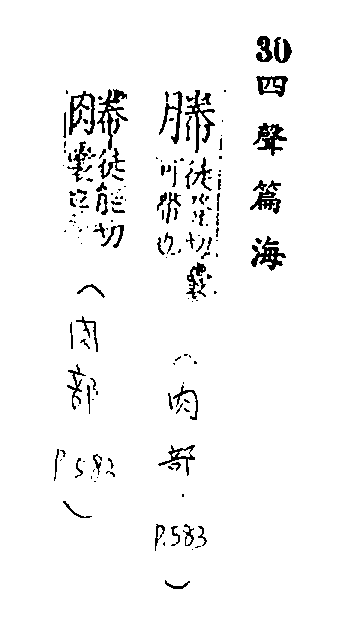 30四聲篇海
幐徒登切囊可帶也（肉部．P.583）
徒能切囊也（肉部P.582）